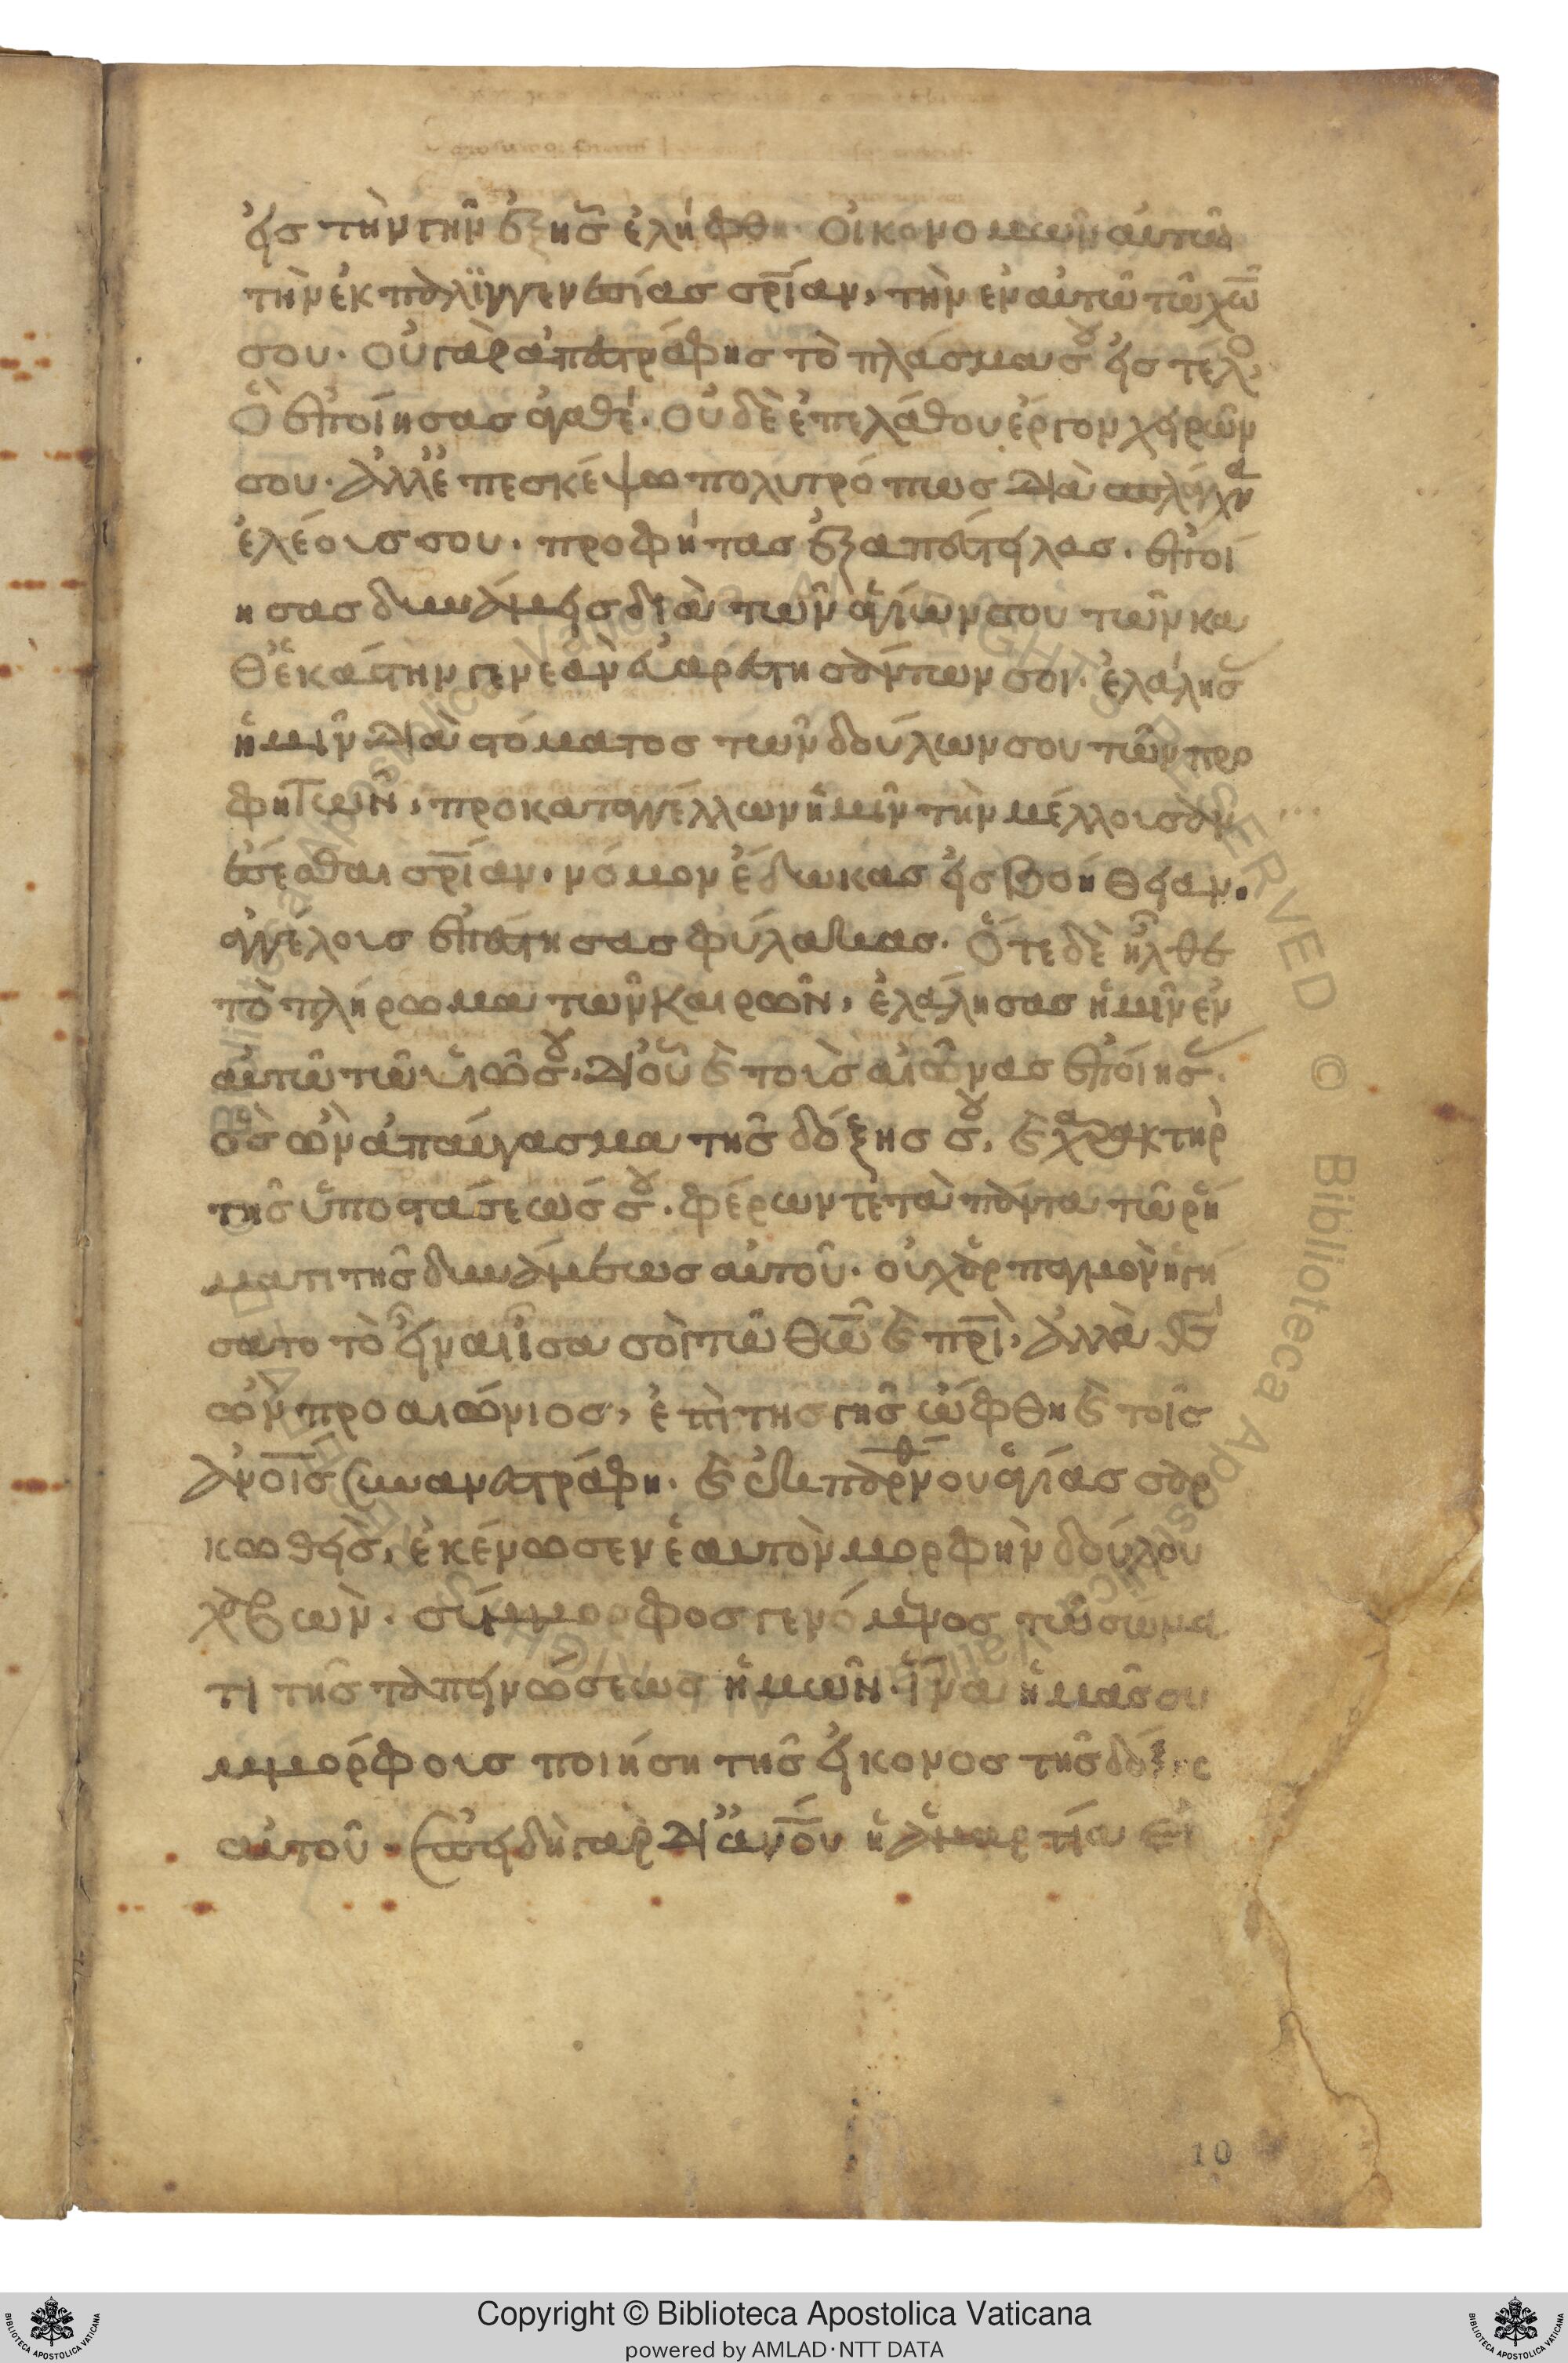 εἰς τὴν γῆν ἐξ ἧς ἐλήφθη. οἰκονομῶν αὐτῶ
τὴν ἐκ παλϊγγενεσίας σρίαν, τὴν ἐν αὐτῶ τῶ χω
σου. οὐ γὰρ ἀπεστράφης τὸ πλάσμα σου εἰς τέλο
ὃ ἐποίησας ἀγαθέ. οὐδὲ ἐπελάθου ἔργον χειρῶν
σου. ἀλλ' ἐπεσκέψω πολυτρόπως διὰ σπλάγχνα
ἐλέους σου. προφήτας ἐξαπέστειλας. ἐποί
ησας δυνάμεις διὰ τῶν ἁγίων σου τῶν κα
θ' ἑκάστην γενεὰν εὐαρεστησάντων σοι. ἐλάλησας
ἡμῖν διὰ στόματος τῶν δούλων σου τῶν προ
φητῶν, προκαταγγέλλων ἡμῖν τὴν μέλλουσαν
ἔσεσθαι σρίαν. νόμον ἔδωκας εἰς βοήθειαν.
ἀγγέλους ἐπέστησας φύλακας. ὅτε δὲ ἦλθε
τὸ πλήρωμα τῶν καιρῶν, ἐλάλησας ἡμῖν ἐν
αὐτῶ τῶ υἱῶ σου, δι' οὗ καὶ τοὺς αἰῶνας ἐποίησας.
ὃς ὢν ἀπαύγασμα τῆς δόξης σου, καὶ χαρακτὴρ
τῆς ὑποστάσεώς σου. φέρων τὲ τὰ πάντα τῶ ῥή
ματι τῆς δυνάμεως αὐτοῦ. οὐχ ἁρπαγμὸν ἡγή
σατο τὸ εἶναι ἶσα σοὶ τῶ θῶ καὶ πρὶ, ἀλλὰ θς
ὢν προαιώνιος, ἐπὶ τῆς γῆς ὤφθη καὶ τοῖς
ἀνοις συνανεστράφη. καὶ ἐκ παρθένου ἁγίας σαρ
κωθεὶς, ἐκένωσεν ἑαυτὸν μορφὴν δούλου
λαβων. σύμμορφος γενόμενος τῶ σώμα
τι τῆς ταπεινώσεως ἡμῶν. ἵνα ἡμᾶς συ
μμόρφους ποιήση τῆς εἰκονος τῆς δόξης
αὐτοῦ. ἐπειδὴ γὰρ δι' ἀνου ἡ ἁμαρτία εἰ
10
Copyright © Biblioteca Apostolica Vaticana
powered by AMLAD · NTT DATA